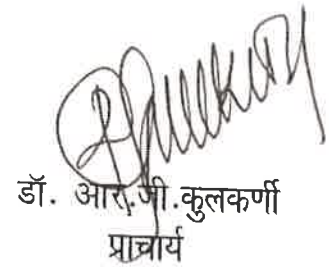 डॉ. आर.जी.कुलकर्णी
प्राचार्य